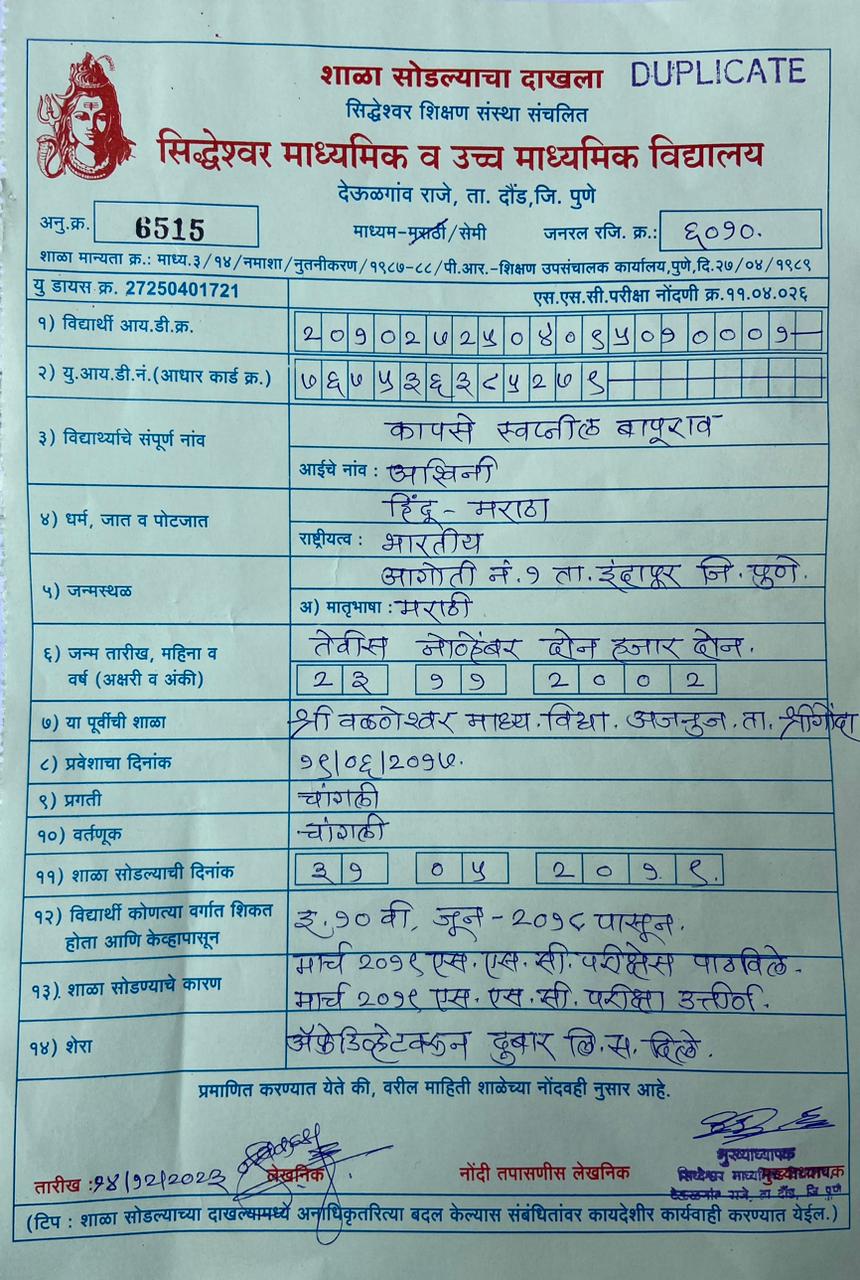 शाळा सोडल्याचा दाखला DUPLICATE
सिद्धेश्वर शिक्षण संस्था संचलित
सिद्धेश्वर माध्यमिक व उच्च माध्यमिक विद्यालय
देऊळगांव राजे, ता. दौंड,जि. पुणे
अनु.क्र. 6515 माध्यम-मराठी/सेमी जनरल रजि. क्र.: ६०१०.
शाळा मान्यता क्र.: माध्य.३/१४/नमाशा/नुतनीकरण/१९८७-८८/पी.आर.-शिक्षण उपसंचालक कार्यालय,पुणे,दि.२७/०४/१९८९
यु डायस क्र. 27250401721 एस.एस.सी.परीक्षा नोंदणी क्र.११.०४.०२६
१) विद्यार्थी आय.डी.क्र. २०१०२७२५०४०९५०१०००१
२) यु.आय.डी.नं.(आधार कार्ड क्र.) ७६७५३६३८५२७९
३) विद्यार्थ्याचे संपूर्ण नांव कापसे स्वप्नील बापूराव
आईचे नांव : अश्विनी
४) धर्म, जात व पोटजात हिंदू - मराठा
राष्ट्रीयत्व : भारतीय
५) जन्मस्थळ आगोती नं.१ ता. इंदापूर जि. पुणे.
अ) मातृभाषा : मराठी.
६) जन्म तारीख, महिना व वर्ष (अक्षरी व अंकी) तेवीस नोव्हेंबर दोन हजार दोन.
२३ ११ २००२
७) या पूर्वीची शाळा श्री वळणेश्वर माध्य. विद्या. अजनुज. ता. श्रीगोंदा
८) प्रवेशाचा दिनांक १९/०६/२०१७.
९) प्रगती चांगली
१०) वर्तणूक चांगली
११) शाळा सोडल्याची दिनांक ३१ ०५ २०१९.
१२) विद्यार्थी कोणत्या वर्गात शिकत होता आणि केव्हापासून इ.१० वी. जून - २०१८ पासून.
१३). शाळा सोडण्याचे कारण मार्च २०१९ एस. एस. सी. परीक्षेस पाठविले.
मार्च २०१९ एस. एस. सी. परीक्षा उत्तीर्ण.
१४) शेरा ॲफेडिव्हेटवरून दुबार लि. स. दिले.
प्रमाणित करण्यात येते की, वरील माहिती शाळेच्या नोंदवही नुसार आहे.
तारीख : १४/१२/२०२३ लेखनिक नोंदी तपासणीस लेखनिक मुख्याध्यापक
मुख्याध्यापक
सिध्देश्वर माध्यमिक
देऊळगांव राजे, ता दौंड, जि पुणे
(टिप : शाळा सोडल्याच्या दाखल्यामध्ये अनाधिकृतरित्या बदल केल्यास संबंधितांवर कायदेशीर कार्यवाही करण्यात येईल.)